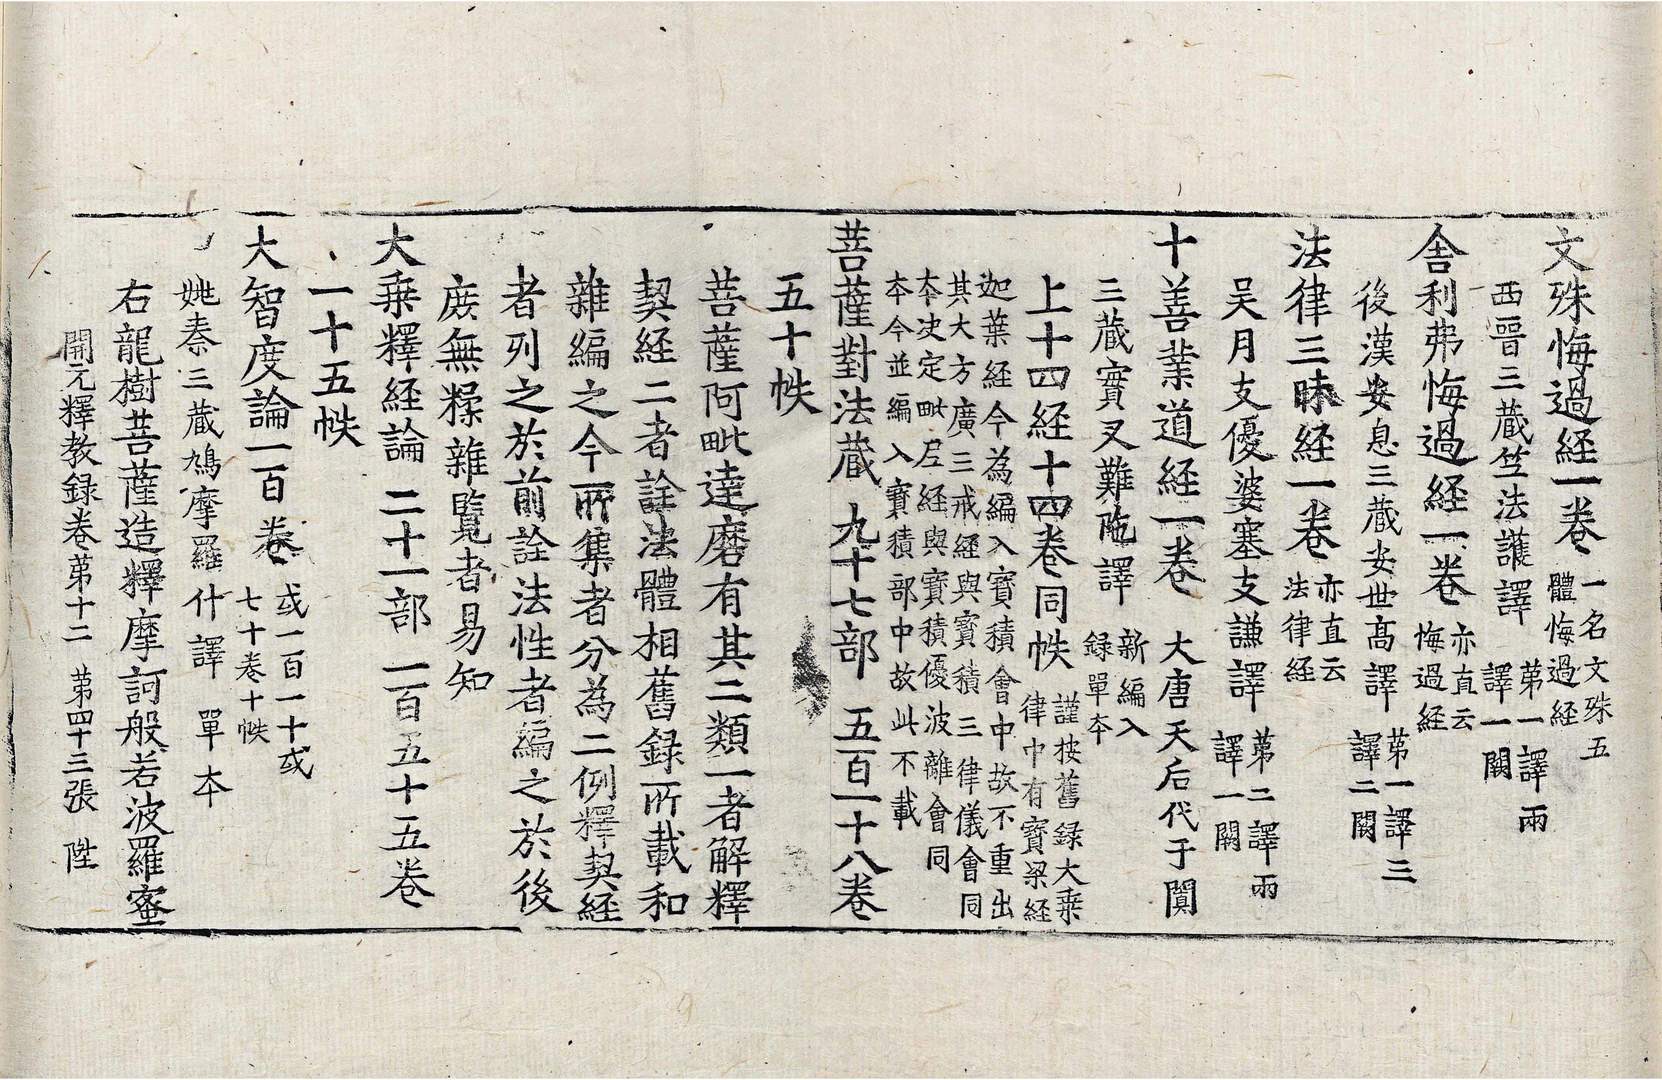 文殊悔過經一卷 一名文殊五體悔過經
西晉三藏竺法護譯 苐一譯兩譯一闕
舍利弗悔過經一卷 亦直云悔過經
後漢安息三藏安世高譯 苐一譯三譯二闕
法律三昧經一卷 亦直云法律經
吴月支優婆塞支謙譯 苐二譯兩譯一闕
十善業道經一卷 大唐天后代于闐
三藏實叉難陁譯 新編入錄單夲
上十四經十四卷同帙 謹按舊錄大乗律中有寶梁經
迦葉經今為編入寶積會中故不重出
其大方廣三戒經與寶積三律儀會同
夲決定毗尼經與寶積優波離會同
夲今並編入寶積部中故此不載
菩薩對法藏 九十七部 五百一十八卷
五十帙
菩薩阿毗達磨有其二類一者解釋
契經二者詮法體相舊錄所載和
雜編之今所集者分為二例釋契經
者列之於前詮法性者編之於後
庻無糅雜覽者易知
大乗釋經論 二十一部 一百五十五卷
一十五帙
大智度論一百卷 或一百一十或七十卷十帙
姚秦三藏鳩摩羅什譯 單夲
右龍樹菩薩造釋摩訶般若波羅蜜
開元釋教錄卷苐十二 苐四十三張 陞